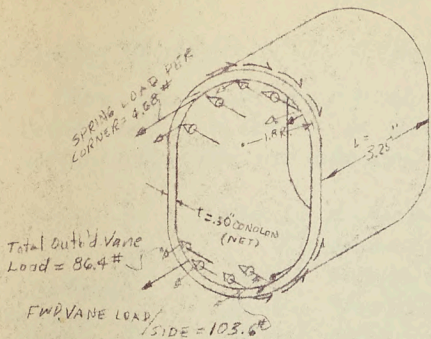 SPRING LOAD PER
CORNER = 4.68#
1.8R.
L =
3.25"
t = .30" CONOLON
(NET)
Total Outb'd. Vane
Load = 86.4#
FWD. VANE LOAD/
SIDE = 103.6#